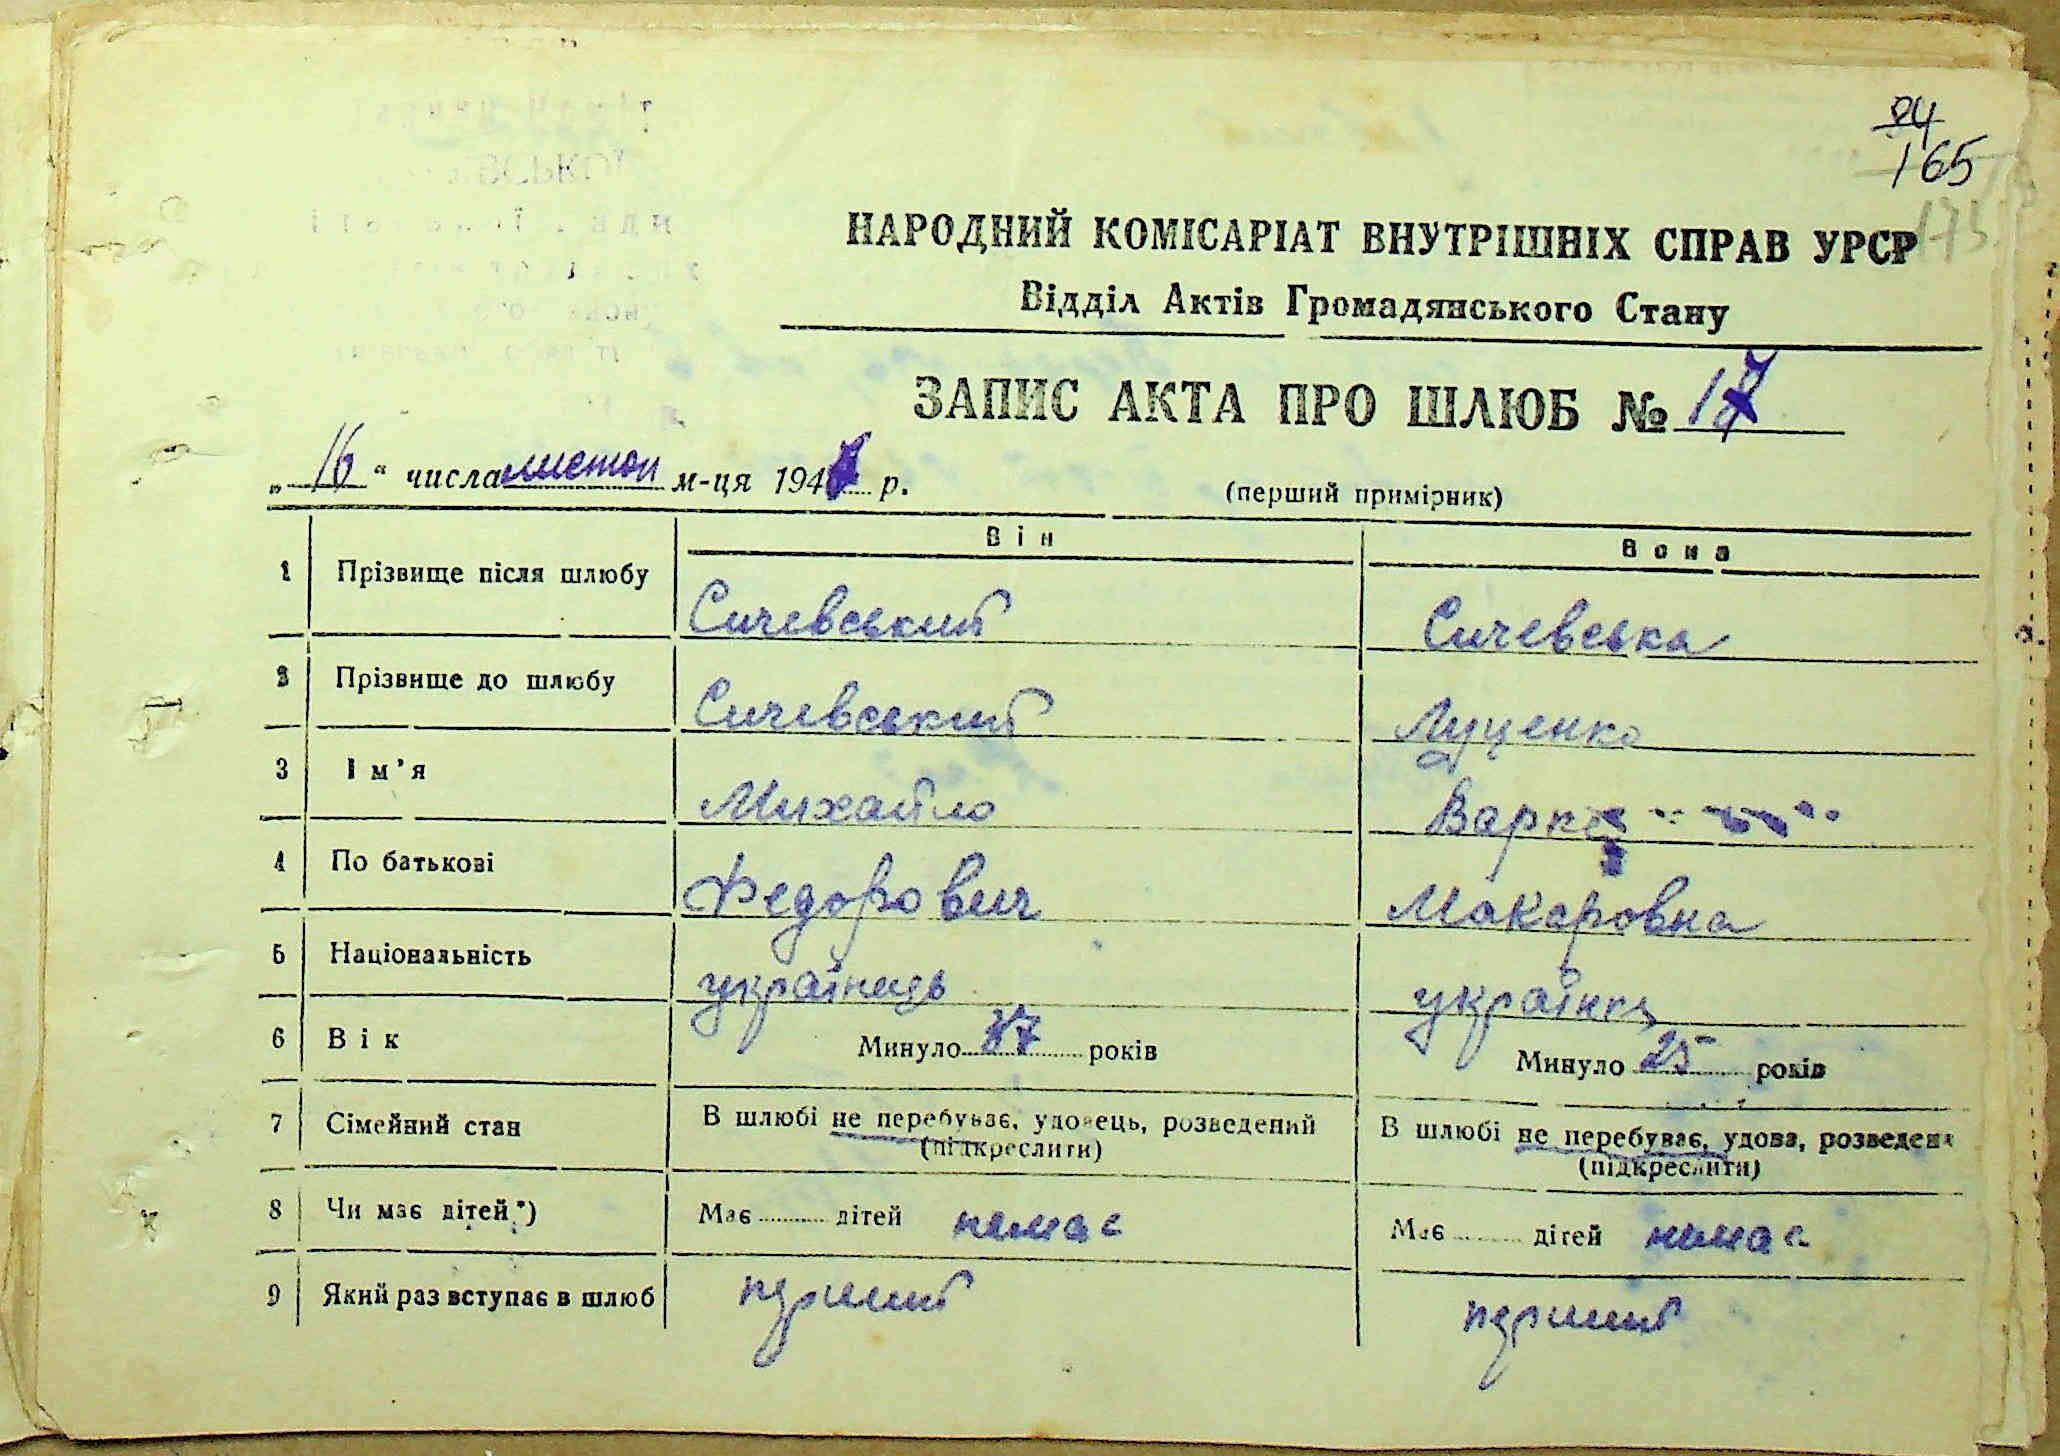 84
165
175
НАРОДНИЙ КОМІСАРІАТ ВНУТРІШНІХ СПРАВ УРСР
Відділ Актів Громадянського Стану
ЗАПИС АКТА ПРО ШЛЮБ № 17
„16“ числа листоп м-ця 194 р.
(перший примірник)
Він Вона
1 Прізвище після шлюбу Сичевський Сичевська
2 Прізвище до шлюбу Сичевський Луценко
3 Ім'я Михайло Варка
4 По батькові Федорович Макаровна
5 Національність українець українка
6 Вік Минуло 37 років Минуло 25 років
7 Сімейний стан В шлюбі не перебуває, удовець, розведений В шлюбі не перебуває, удова, розведена
(підкреслити) (підкреслити)
8 Чи має дітей*) Має дітей немає Має дітей немає
9 Який раз вступає в шлюб перший перший